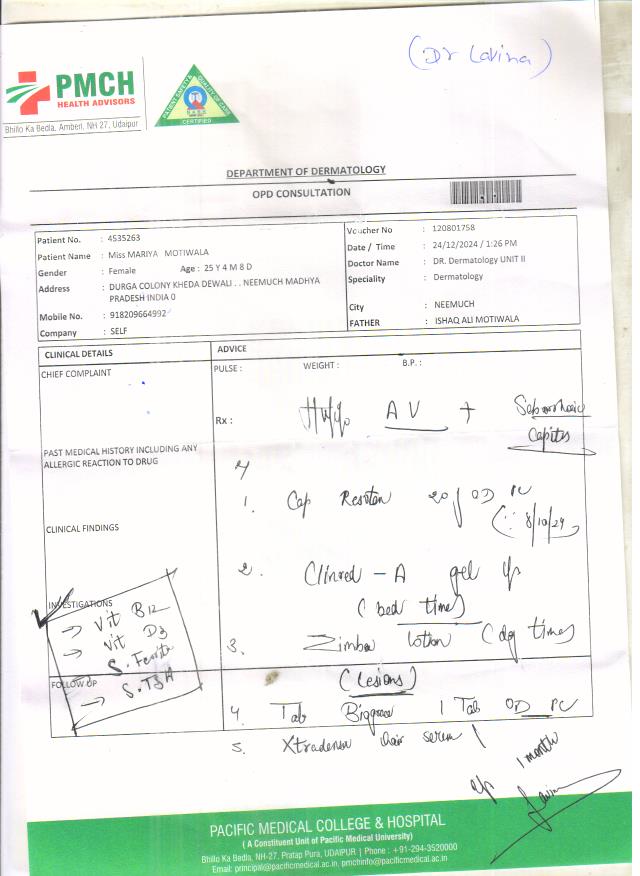 (Dr Lavina)
PMCH
HEALTH ADVISORS
Bhillo Ka Bedla, Amberi, NH 27, Udaipur
PATIENT SAFETY & QUALITY OF CARE
CERTIFIED
DEPARTMENT OF DERMATOLOGY
OPD CONSULTATION
Patient No. : 4535263
Patient Name : Miss MARIYA MOTIWALA
Gender : Female Age : 25 Y 4 M 8 D
Address : DURGA COLONY KHEDA DEWALI . . NEEMUCH MADHYA
PRADESH INDIA 0
Mobile No. : 918209664992
Company : SELF
Voucher No : 120801758
Date / Time : 24/12/2024 / 1:26 PM
Doctor Name : DR. Dermatology UNIT II
Speciality : Dermatology
City : NEEMUCH
FATHER : ISHAQ ALI MOTIWALA
CLINICAL DETAILS
ADVICE
CHIEF COMPLAINT
PULSE : WEIGHT : B.P. :
Rx : AV + Seborrhoeic
Capitis
PAST MEDICAL HISTORY INCLUDING ANY
ALLERGIC REACTION TO DRUG
1. Cap 20 OD PC
8/10/24
CLINICAL FINDINGS
2. Clinred - A gel
(bed time)
INVESTIGATIONS
→ Vit B12
→ Vit D3
S. Ferritin
→ S. TSH
3. lotion
(Lesions)
FOLLOW UP
4. Tab 1 Tab OD PC
5. hair serum
1 month
PACIFIC MEDICAL COLLEGE & HOSPITAL
( A Constituent Unit of Pacific Medical University)
Bhillo Ka Bedla, NH-27, Pratap Pura, UDAIPUR | Phone : +91-294-3520000
Email: principal@pacificmedical.ac.in, pmchinfo@pacificmedical.ac.in